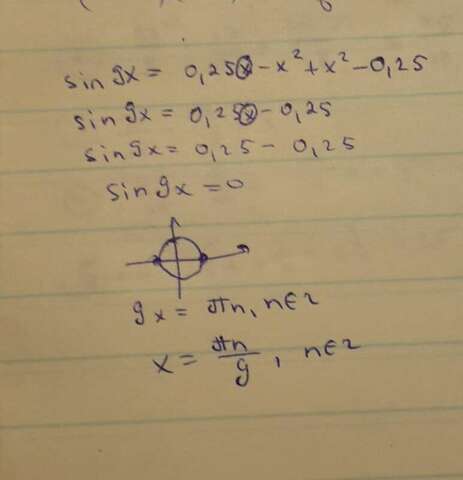 sin 9x = 0,25x - x² + x² - 0,25
sin 9x = 0,25x - 0,25
sin 9x = 0,25 - 0,25
sin 9x = 0
9x = πn, n∈z
x = πn/9, n∈z